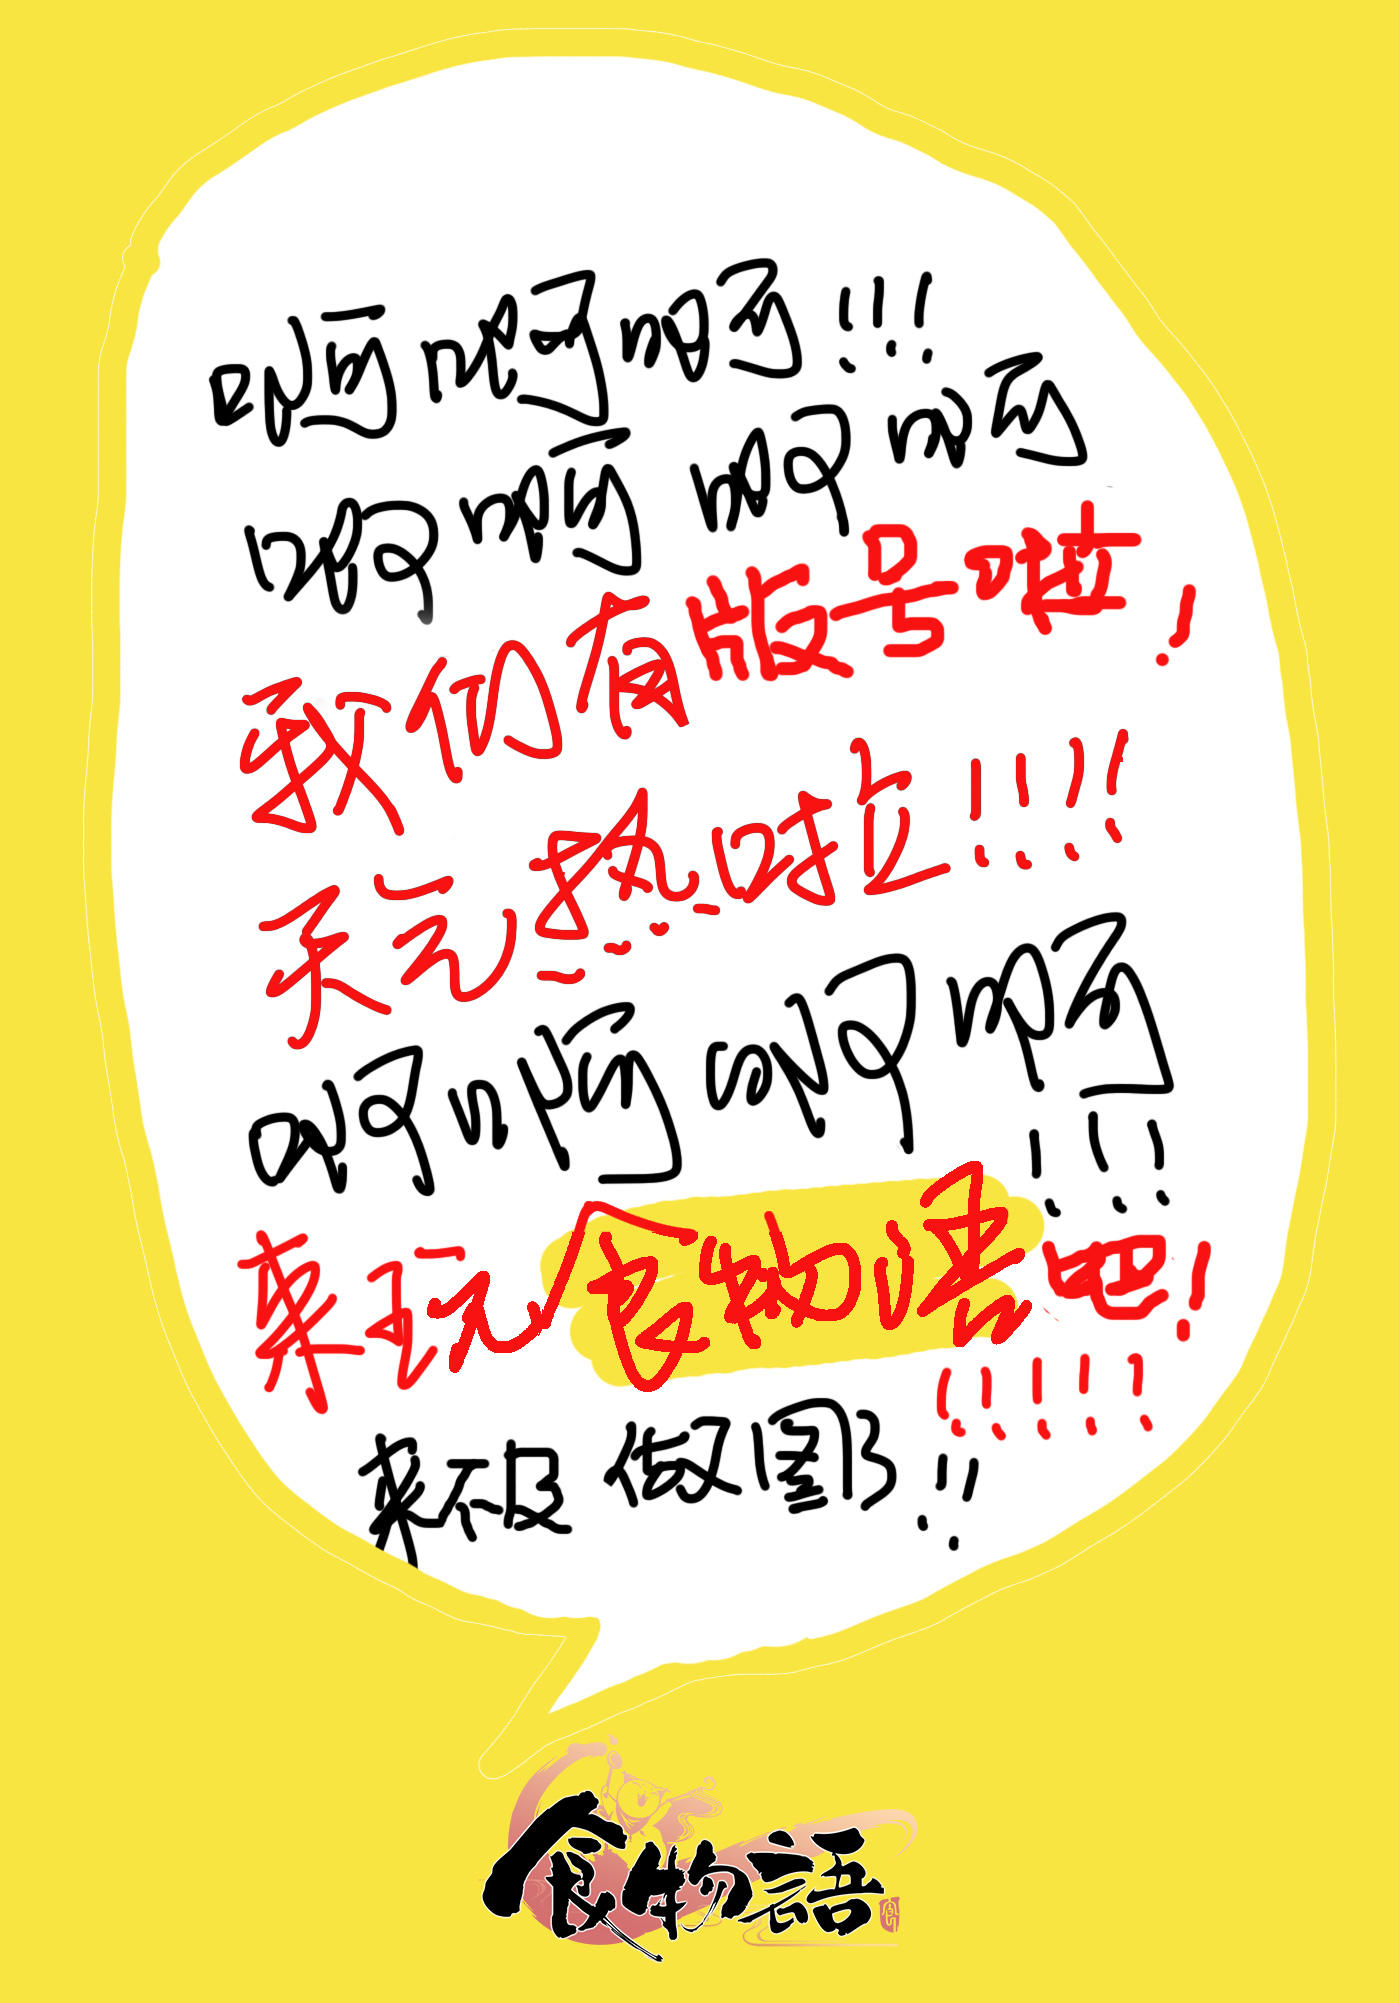 啊啊啊!!!
啊啊啊啊
我们有版号啦!
天气热啦!!!!
啊啊啊啊!!!
来玩食物语吧!
!!!!!
来不及做图了!!
食物語